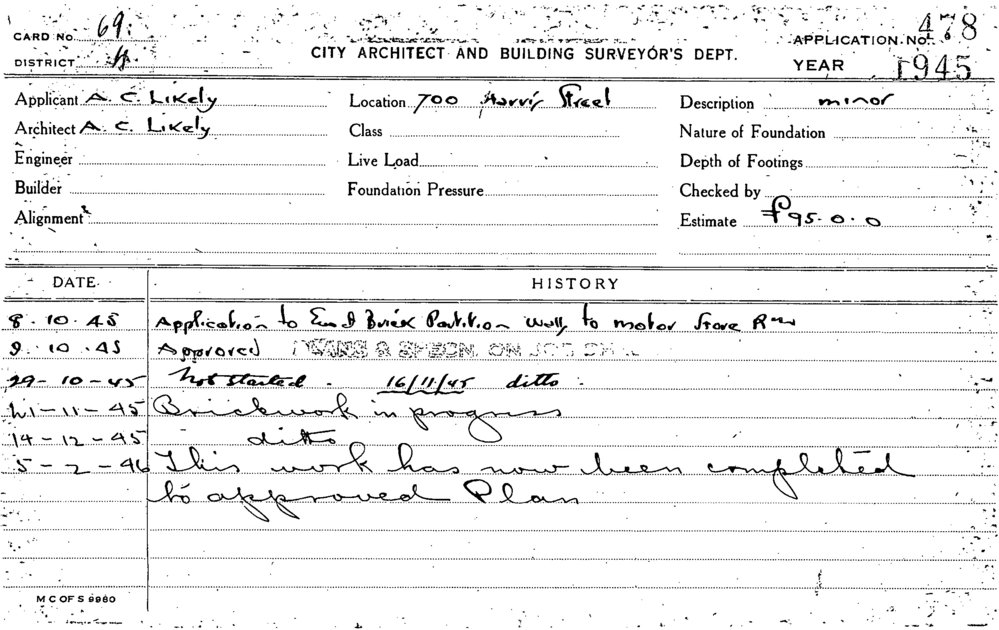 CARD No. 69.
APPLICATION No. 478
DISTRICT
CITY ARCHITECT AND BUILDING SURVEYOR'S DEPT.
YEAR 1945
Applicant A. C. Likely
Location 700 Harris Street
Description minor
Architect A. C. Likely
Class
Nature of Foundation
Engineer
Live Load
Depth of Footings
Builder
Foundation Pressure
Checked by
Alignment
Estimate £95.0.0
DATE
HISTORY
8.10.45 Application to Brick Partition to motor Store
9.10.45 Approved
29-10-45 Not started. 16/11/45 ditto.
21-11-45 Brickwork in progress
14-12-45 ditto
5-2-46 This work has now been completed
to approved Plan
M C OF S 9980